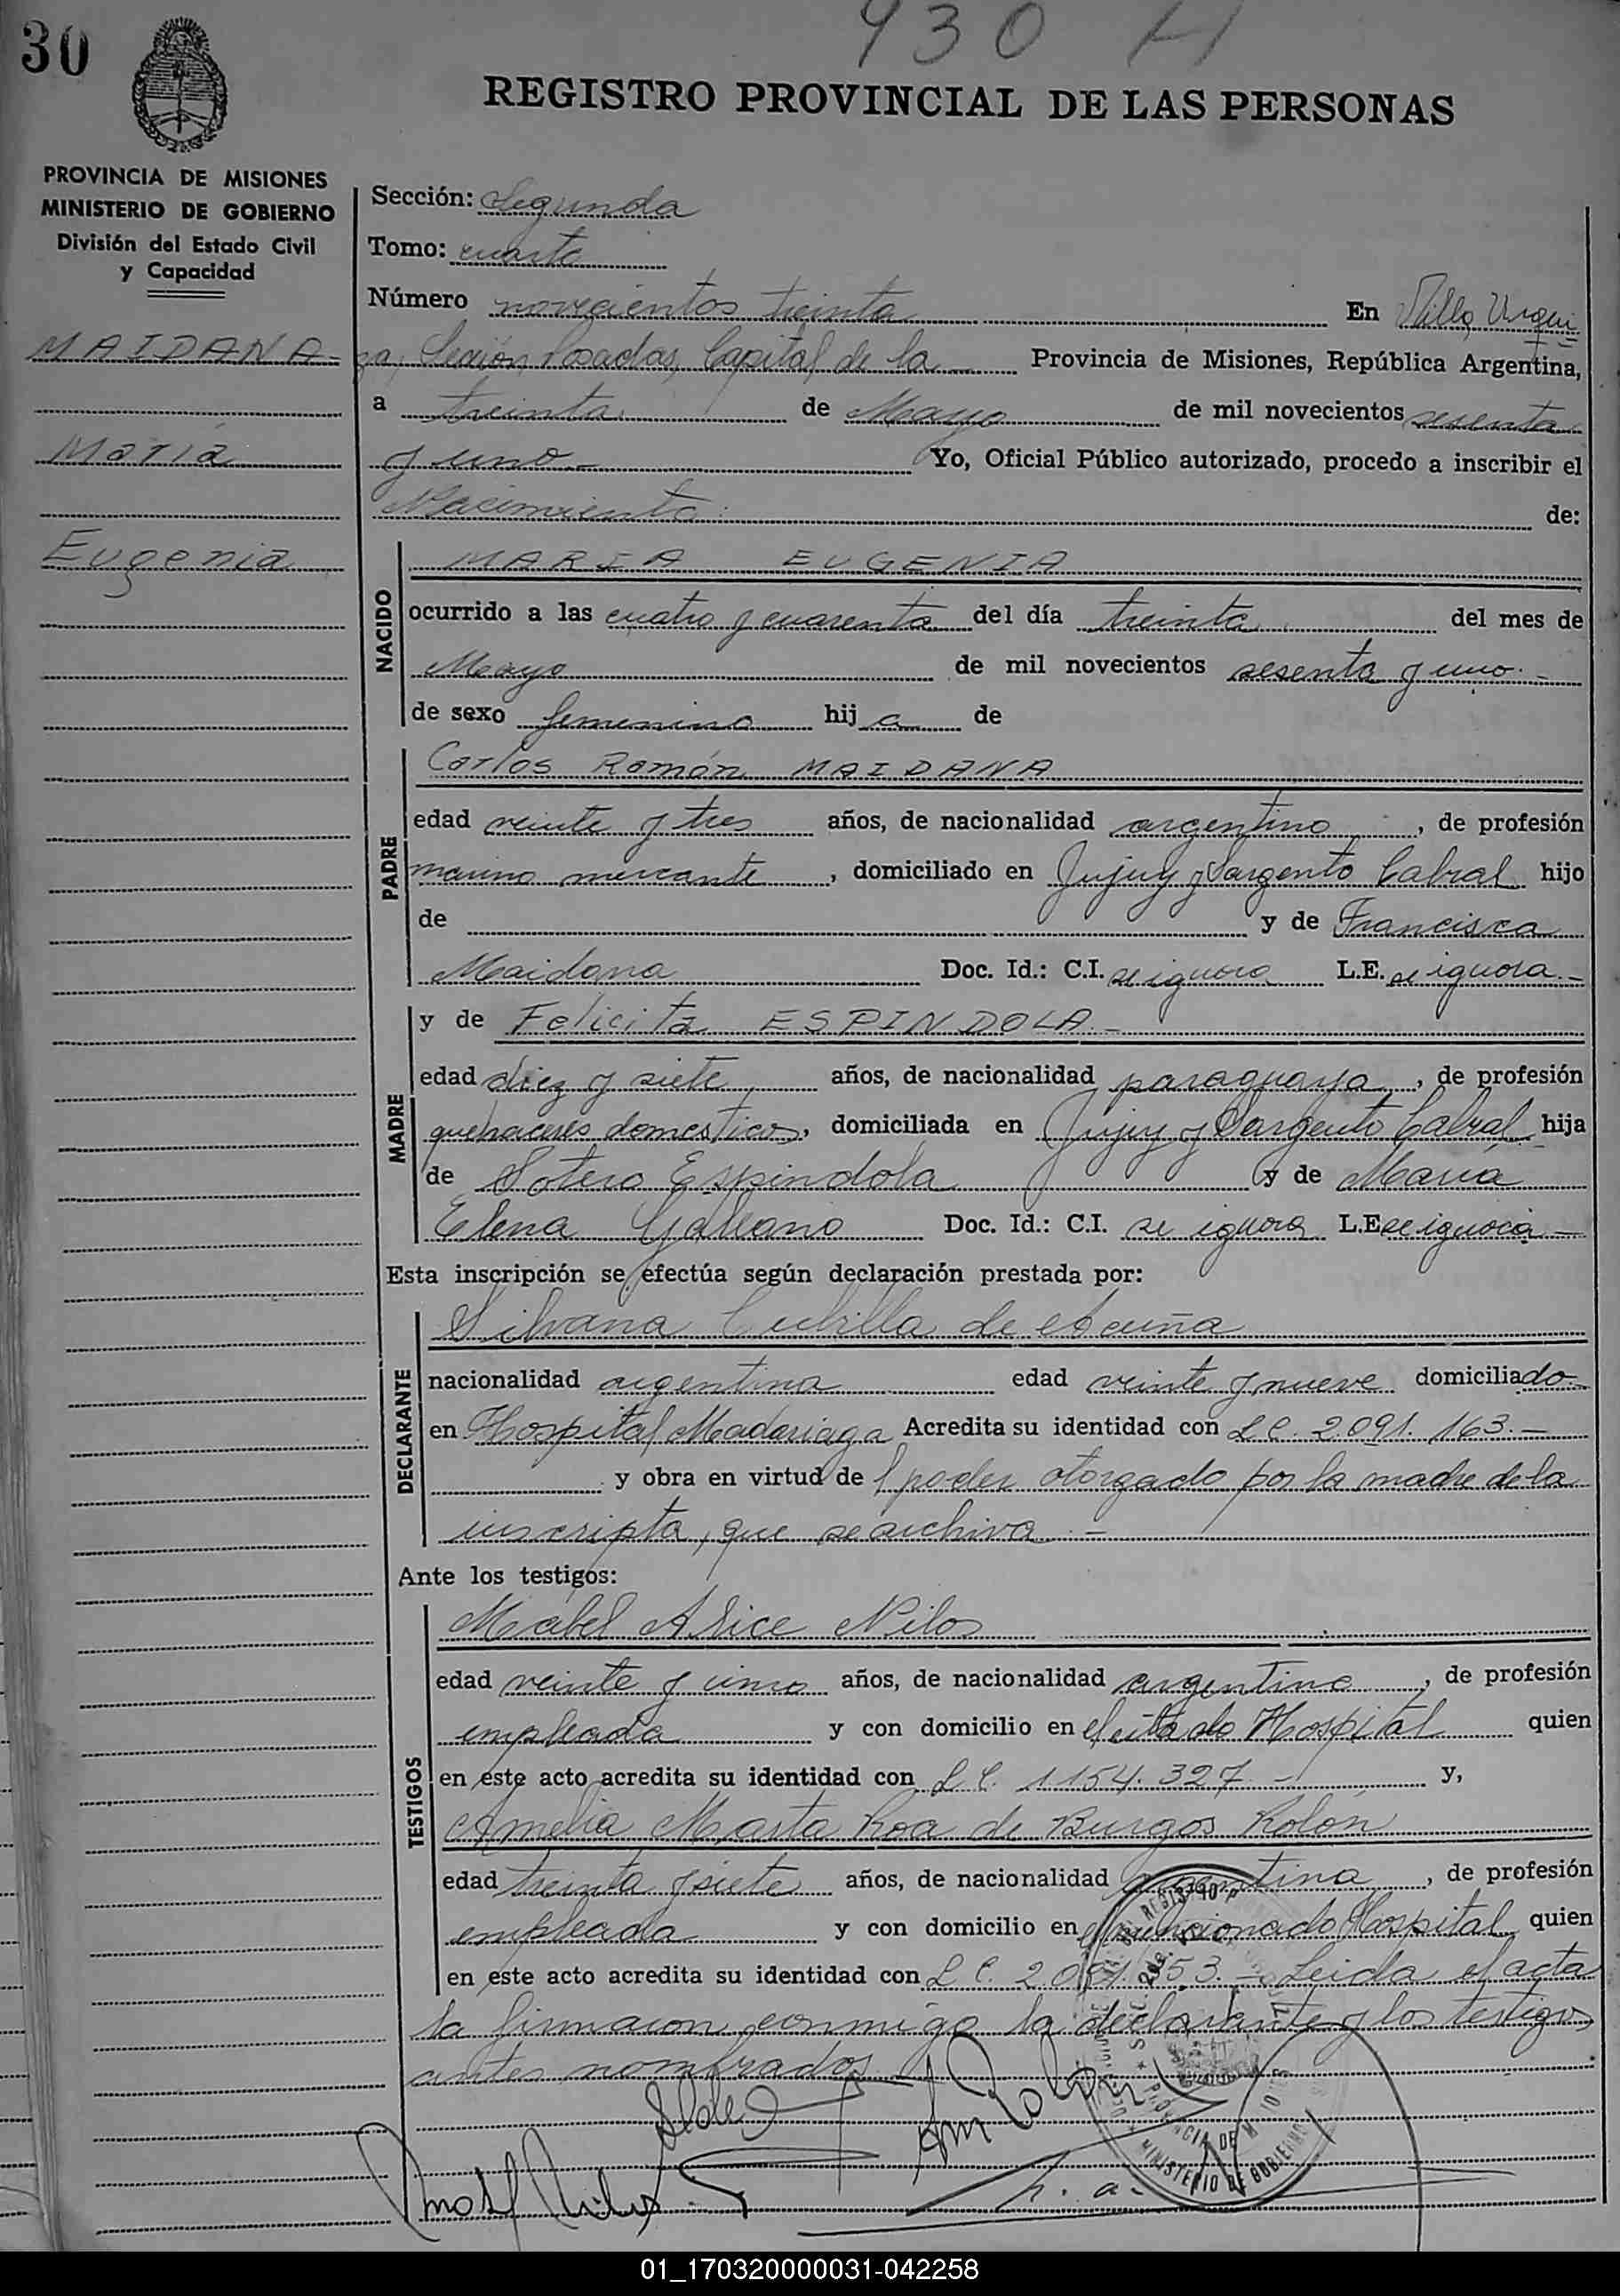 30
930 H
REGISTRO PROVINCIAL DE LAS PERSONAS
PROVINCIA DE MISIONES
MINISTERIO DE GOBIERNO
División del Estado Civil
y Capacidad
MAIDANA
María
Eugenia
Sección: Segunda
Tomo: cuarto
Número novecientos treinta En Villa Urqui
za, Sección Posadas, Capital de la Provincia de Misiones, República Argentina,
a treinta de Mayo de mil novecientos sesenta
y uno.- Yo, Oficial Público autorizado, procedo a inscribir el
Nacimiento de:
NACIDO
MARIA EUGENIA
ocurrido a las cuatro y cuarenta del día treinta del mes de
Mayo de mil novecientos sesenta y uno.-
de sexo femenino hij a de
PADRE
Carlos Román MAIDANA
edad veinte y tres años, de nacionalidad argentino, de profesión
marino mercante, domiciliado en Jujuy y Sargento Cabral hijo
de y de Francisca
Maidana Doc. Id.: C.I. se ignora L.E. se ignora.-
MADRE
y de Felicita ESPINDOLA.-
edad diez y siete años, de nacionalidad paraguaya, de profesión
quehaceres domesticos, domiciliada en Jujuy y Sargento Cabral hija
de Sotero Espindola y de María
Elena Galeano Doc. Id.: C.I. se ignora L.E. se ignora -
Esta inscripción se efectúa según declaración prestada por:
DECLARANTE
Silvana Cubilla de Acuña
nacionalidad argentina edad veinte y nueve domiciliado
en Hospital Madariaga Acredita su identidad con L.C. 2.091.163.-
y obra en virtud de l poder otorgado por la madre de la
inscripta, que se archiva.-
Ante los testigos:
TESTIGOS
Mabel Alice Nilos
edad veinte y cinco años, de nacionalidad argentina, de profesión
empleada y con domicilio en el citado Hospital quien
en este acto acredita su identidad con L.C. 1.154.327.- y,
Amelia Marta Roa de Burgos Rolón
edad treinta y siete años, de nacionalidad argentina, de profesión
empleada y con domicilio en el mencionado Hospital quien
en este acto acredita su identidad con L.C. - Leida el acta
la firmaron conmigo la declarante y los testigos
antes nombrados
PROVINCIA DE MISIONES
MINISTERIO DE GOBIERNO
01_170320000031-042258